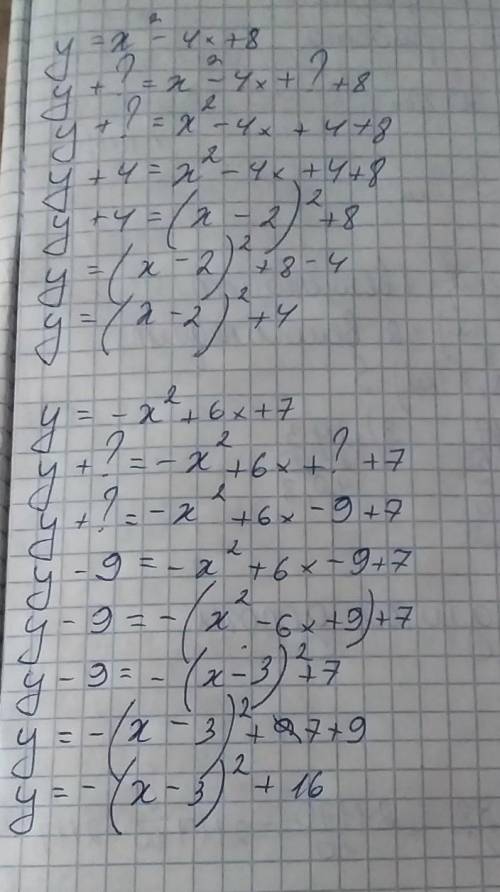 y = x² - 4x + 8
y + ? = x² - 4x + ? + 8
y + ? = x² - 4x + 4 + 8
y + 4 = x² - 4x + 4 + 8
y + 4 = (x - 2)² + 8
y = (x - 2)² + 8 - 4
y = (x - 2)² + 4
y = - x² + 6x + 7
y + ? = - x² + 6x + ? + 7
y + ? = - x² + 6x - 9 + 7
y - 9 = - x² + 6x - 9 + 7
y - 9 = - (x² - 6x + 9) + 7
y - 9 = - (x - 3)² + 7
y = - (x - 3)² + 7 + 9
y = - (x - 3)² + 16